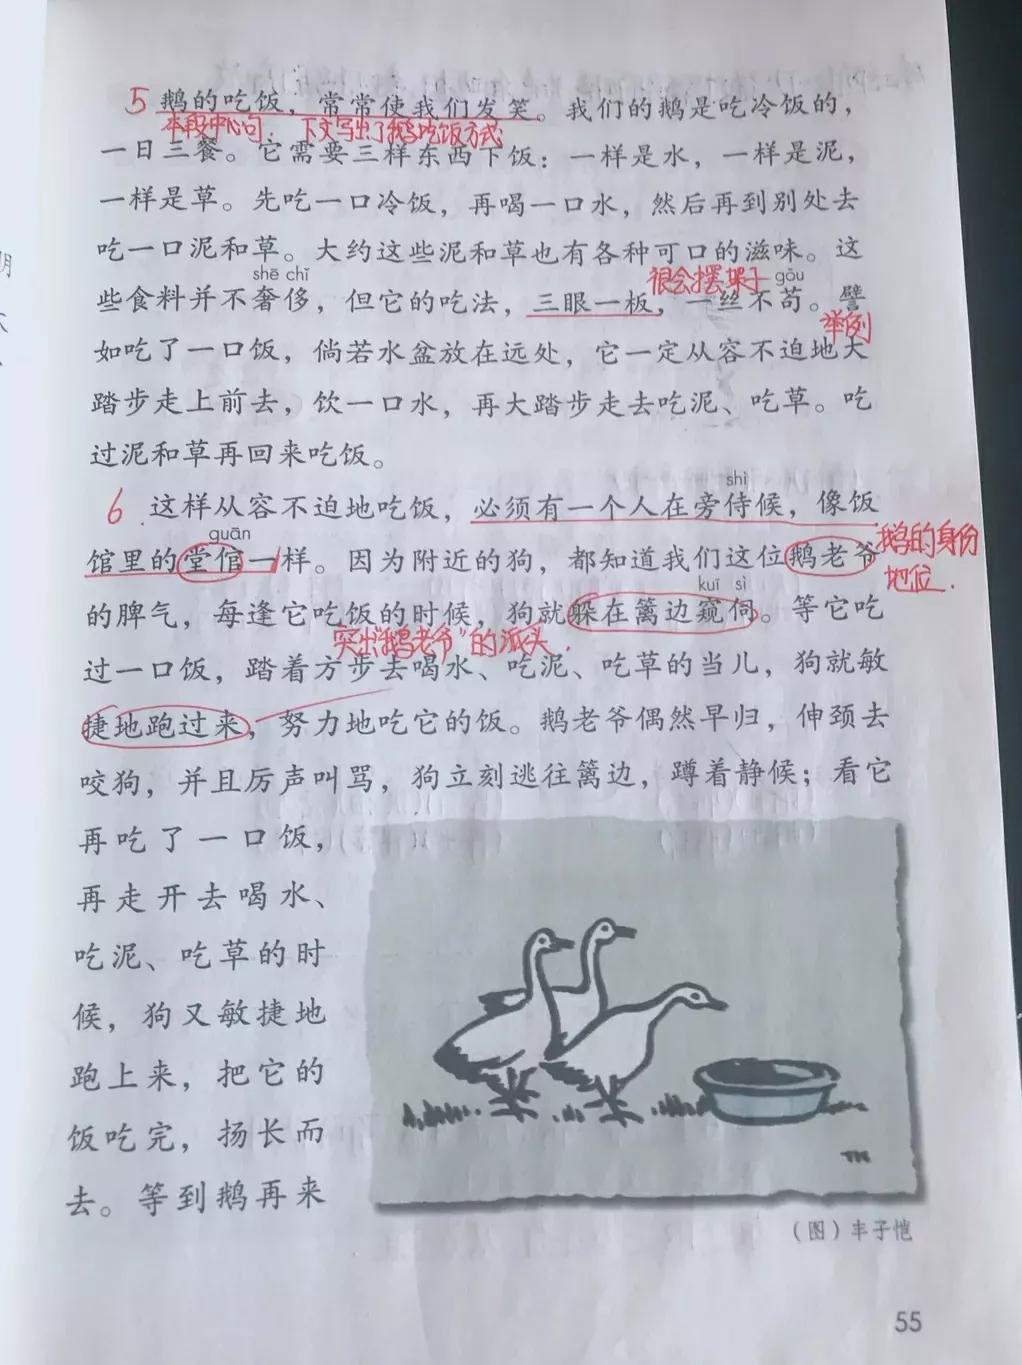 5 鹅的吃饭，常常使我们发笑。我们的鹅是吃冷饭的，
本段中心句. 下文写出了鹅吃饭方式
一日三餐。它需要三样东西下饭：一样是水，一样是泥，
一样是草。先吃一口冷饭，再喝一口水，然后再到别处去
吃一口泥和草。大约这些泥和草也有各种可口的滋味。这
shē chǐ
很会摆架子
gǒu
些食料并不奢侈，但它的吃法，三眼一板，一丝不苟。譬
举例
如吃了一口饭，倘若水盆放在远处，它一定从容不迫地大
踏步走上前去，饮一口水，再大踏步走去吃泥、吃草。吃
过泥和草再回来吃饭。
shì
6. 这样从容不迫地吃饭，必须有一个人在旁侍候，像饭
guān
鹅的身份
馆里的堂倌一样。因为附近的狗，都知道我们这位鹅老爷
地位.
kuī sì
的脾气，每逢它吃饭的时候，狗就躲在篱边窥伺。等它吃
突出“鹅老爷”的派头.
过一口饭，踏着方步去喝水、吃泥、吃草的当儿，狗就敏
捷地跑过来，努力地吃它的饭。鹅老爷偶然早归，伸颈去
咬狗，并且厉声叫骂，狗立刻逃往篱边，蹲着静候；看它
再吃了一口饭，
再走开去喝水、
吃泥、吃草的时
候，狗又敏捷地
跑上来，把它的
饭吃完，扬长而
去。等到鹅再来
TK
（图）丰子恺
55